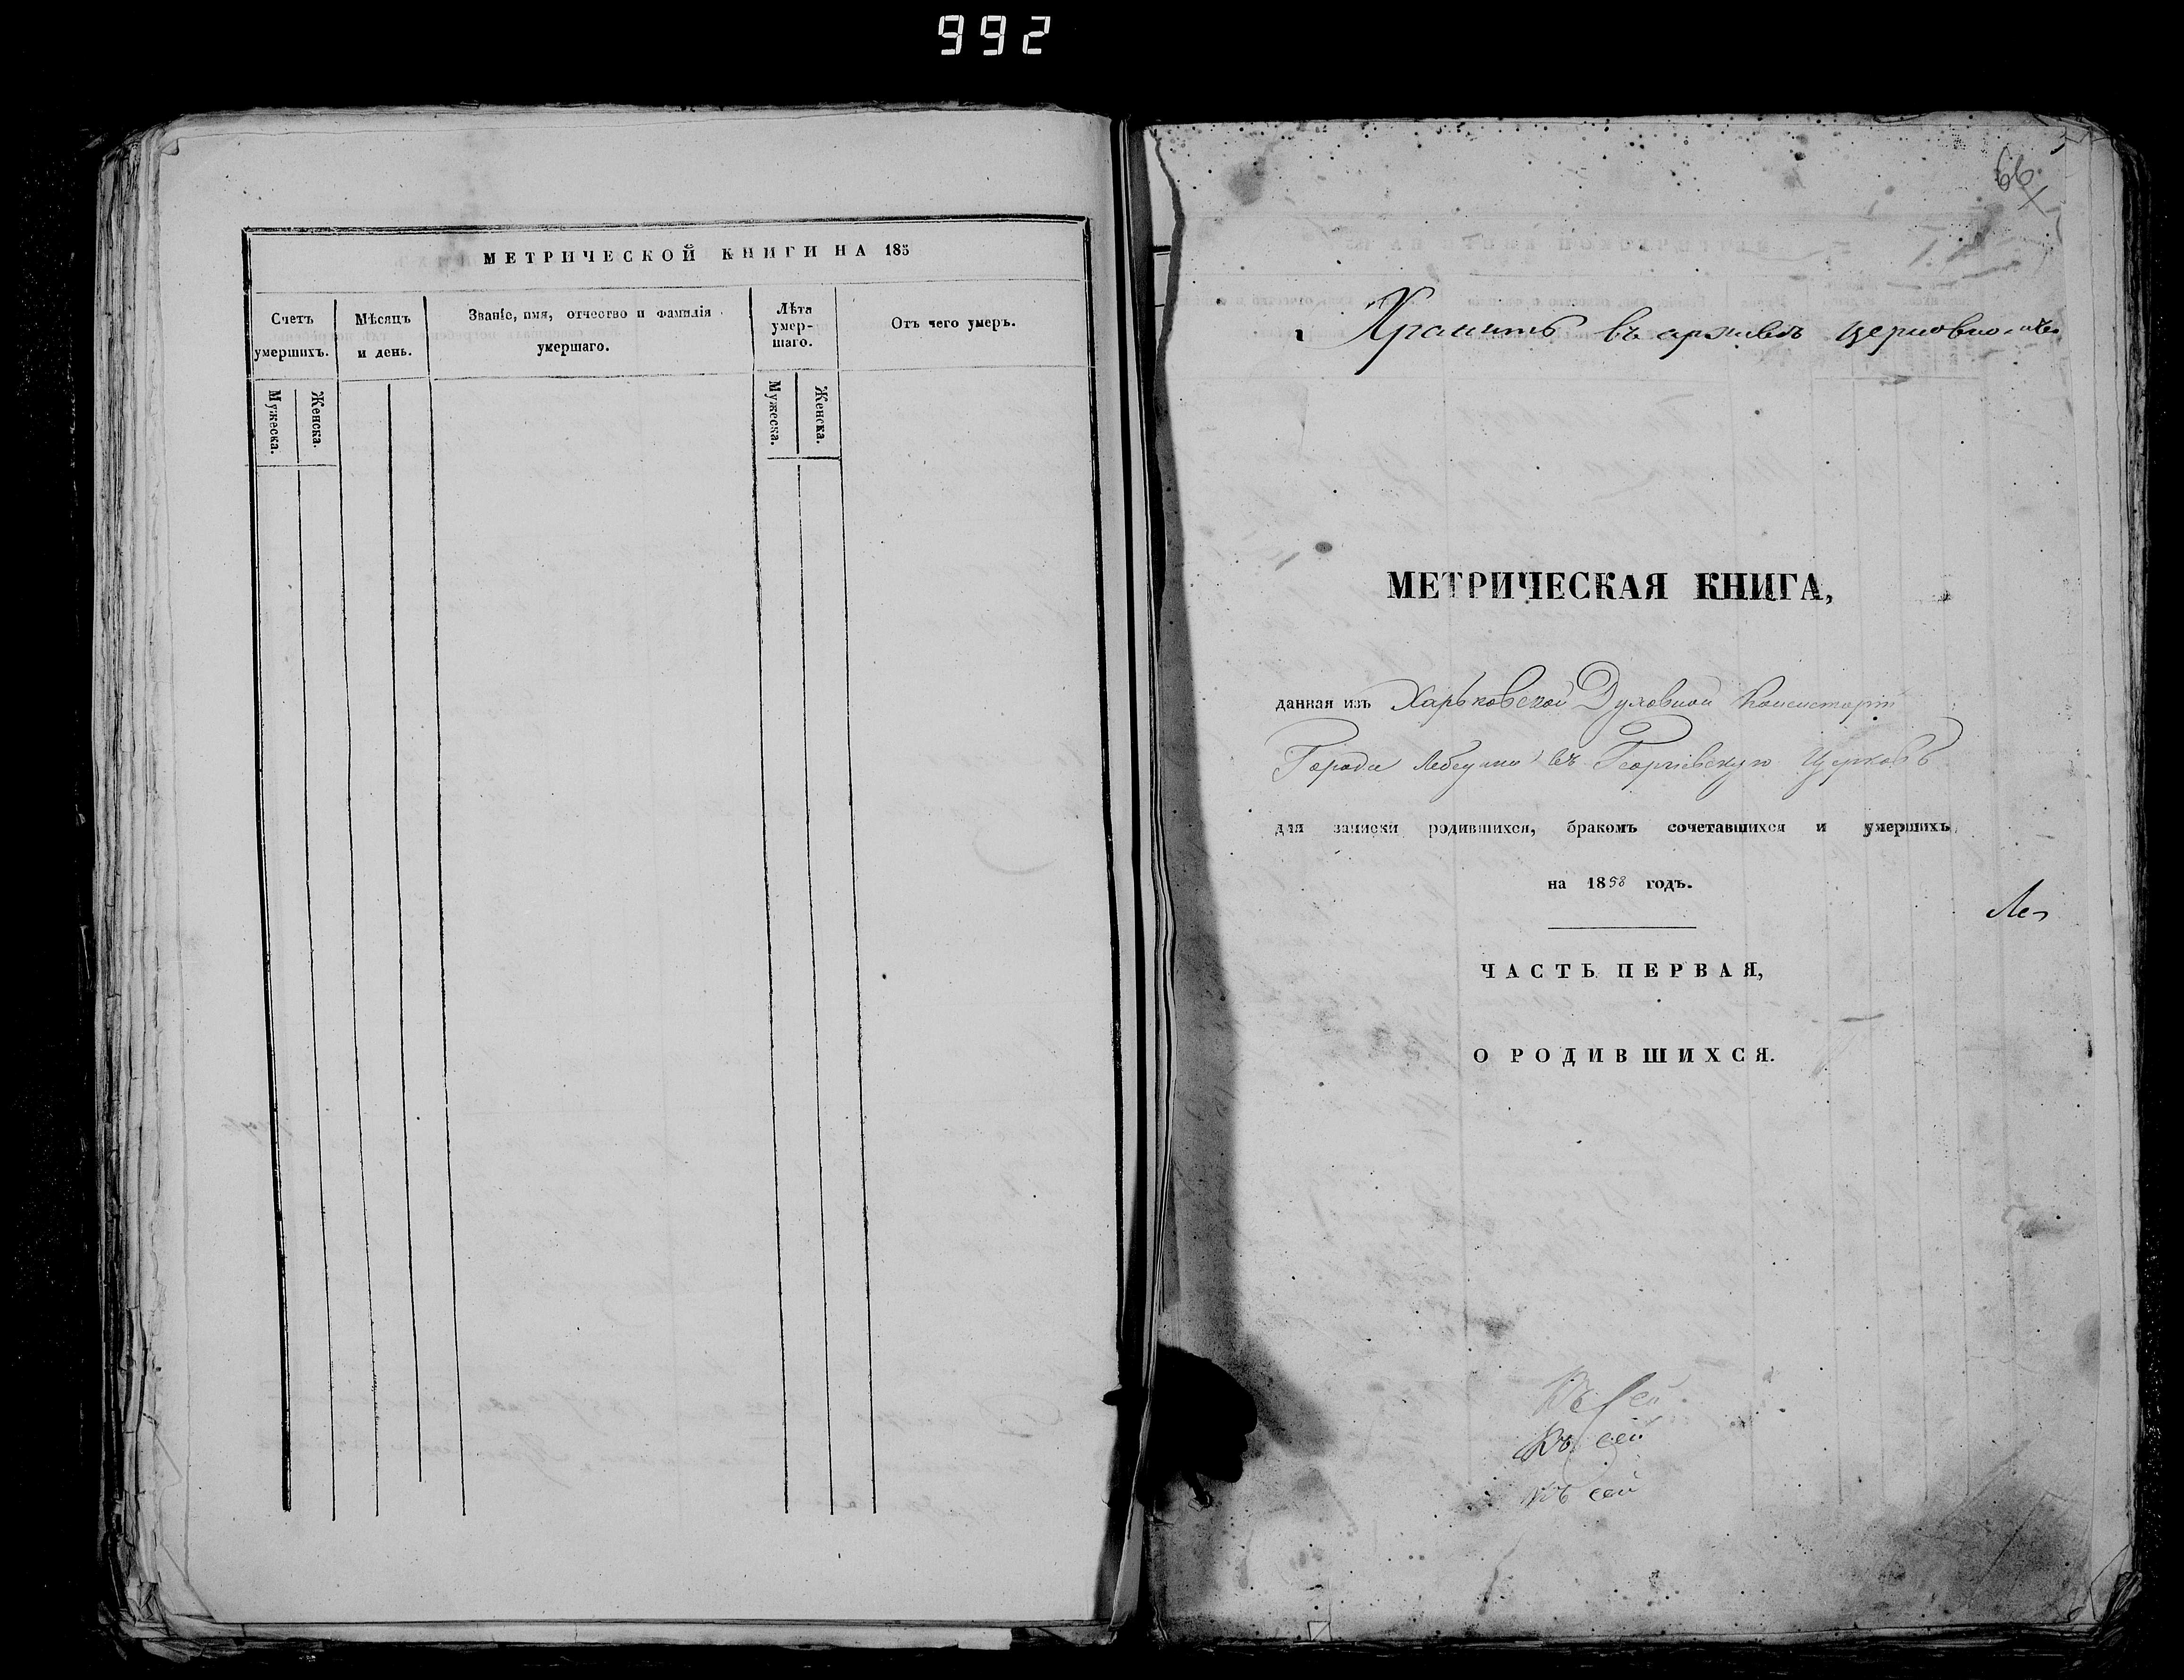 992
МЕТРИЧЕСКОЙ КНИГИ НА 185
Счетъ умершихъ.
Мужеска.
Женска.
Мѣсяцъ и день.
Званіе, имя, отчество и фамилія
умершаго.
Лѣта
умер-
шаго.
Мужеска.
Женска.
Отъ чего умеръ.
66
Хранить въ архивѣ
МЕТРИЧЕСКАЯ КНИГА,
данная изъ Харьковской Духовной Консисторіи
Города Лебедина въ Георгіевскую Церковь
для записки родившихся, бракомъ сочетавшихся и умершихъ
на 1858 годъ.
Ле
ЧАСТЬ ПЕРВАЯ,
О РОДИВШИХСЯ.
Въ сей
Въ сей
Въ сей